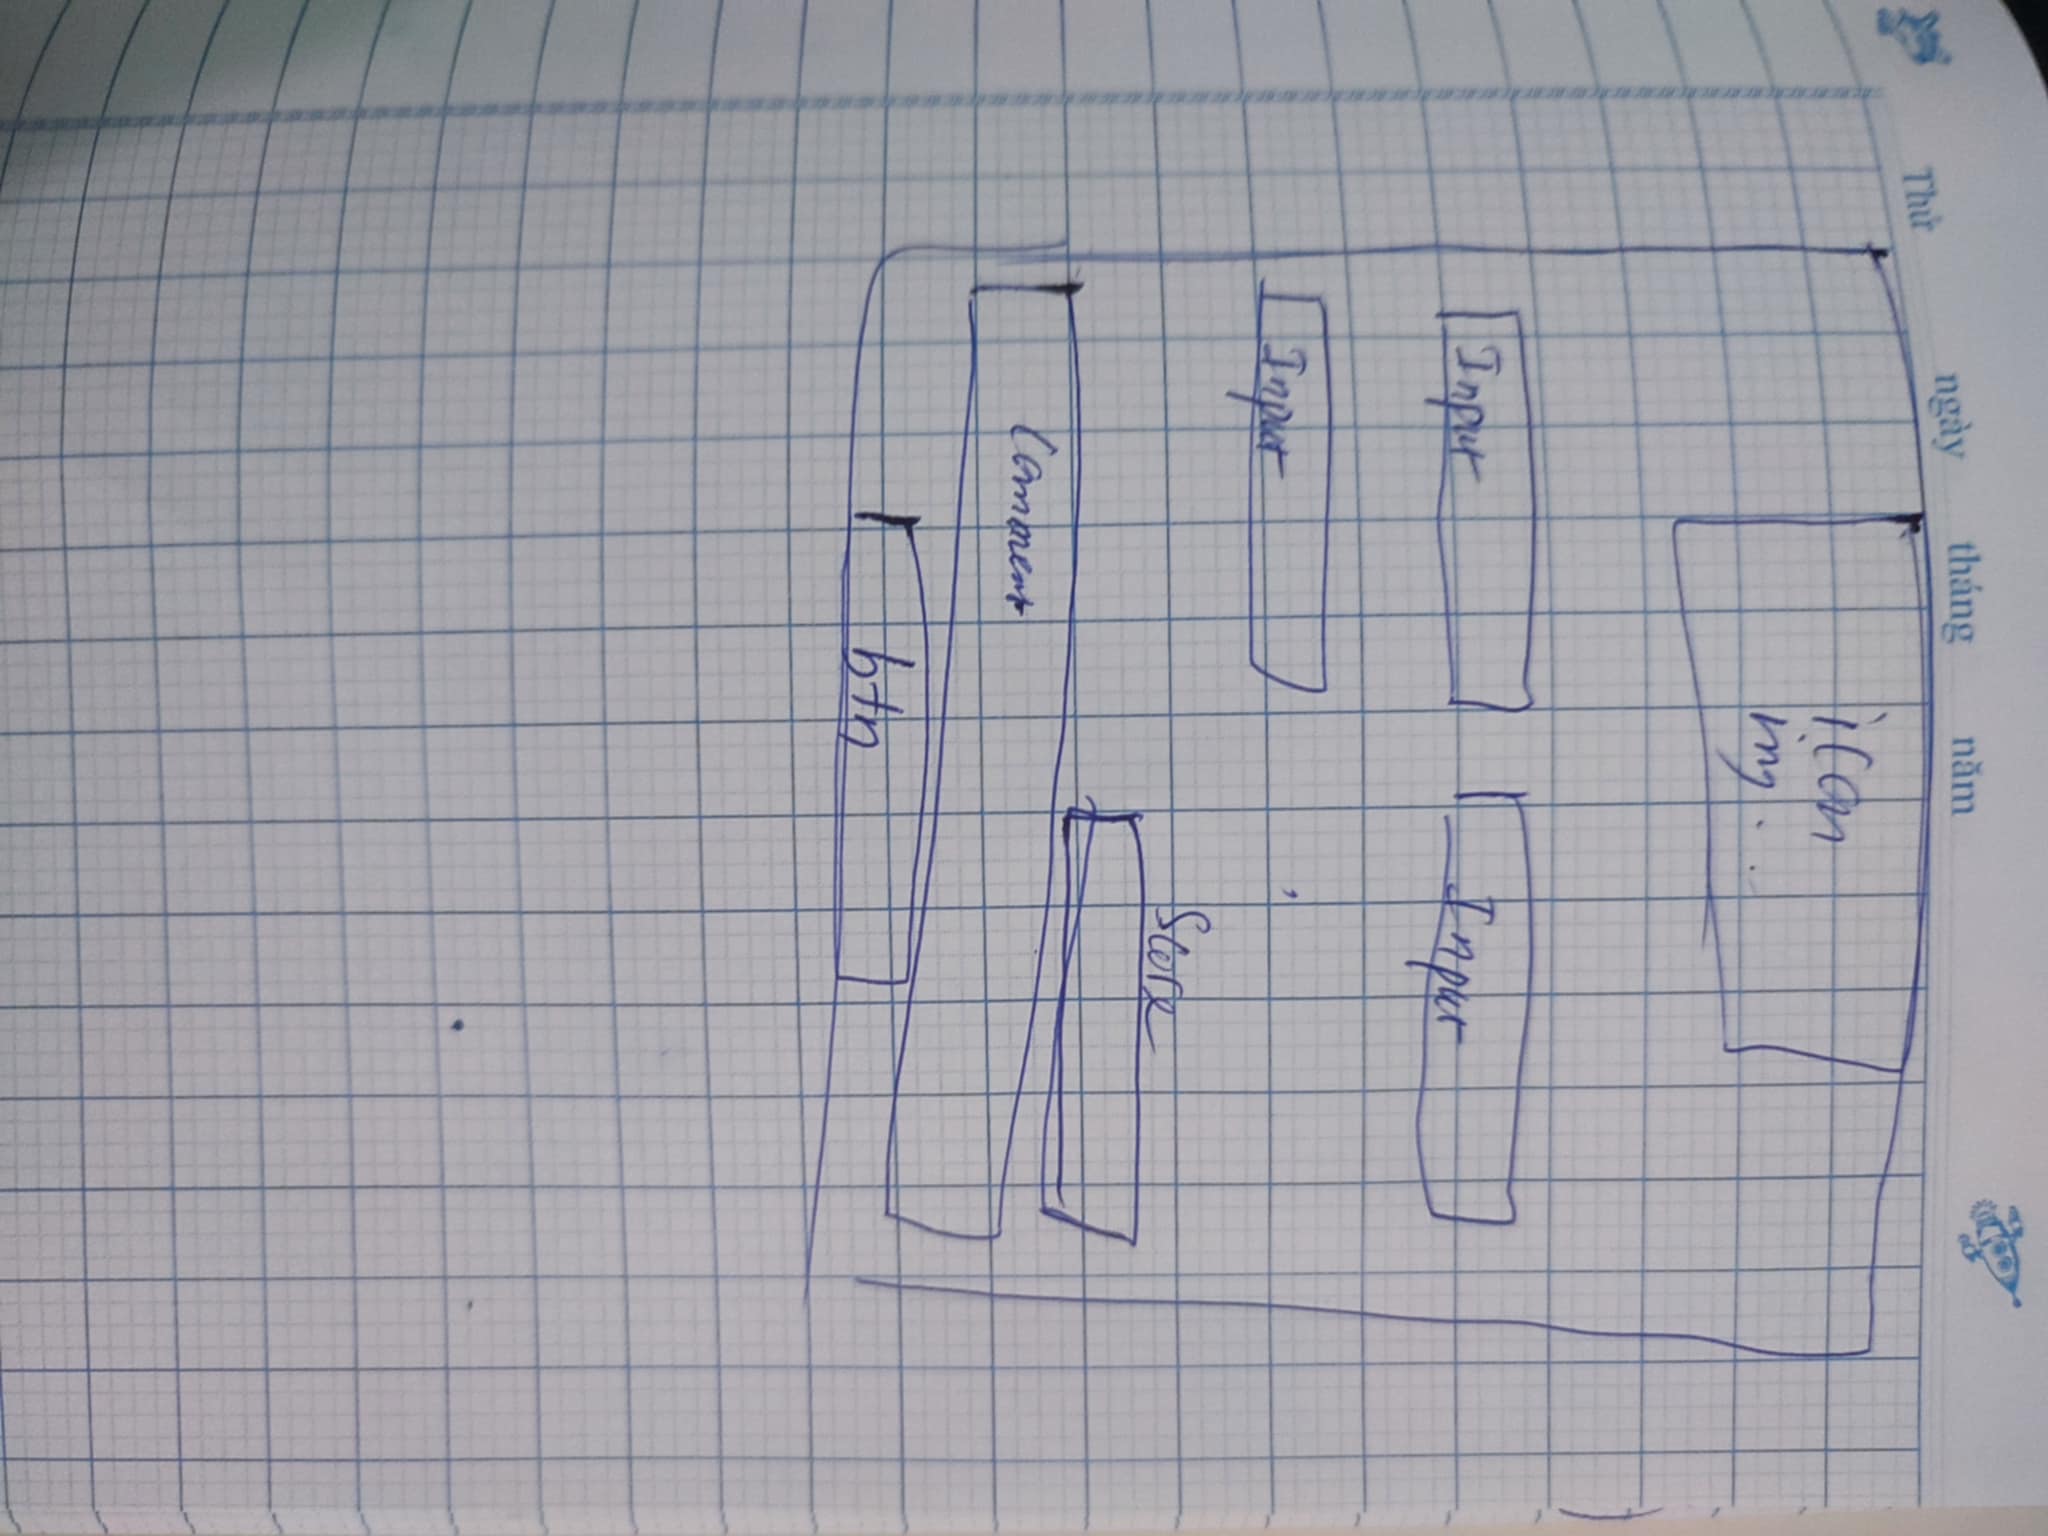 Thứ ngày tháng năm
icon
img...
Input Input
Input
Score
Comment
btn